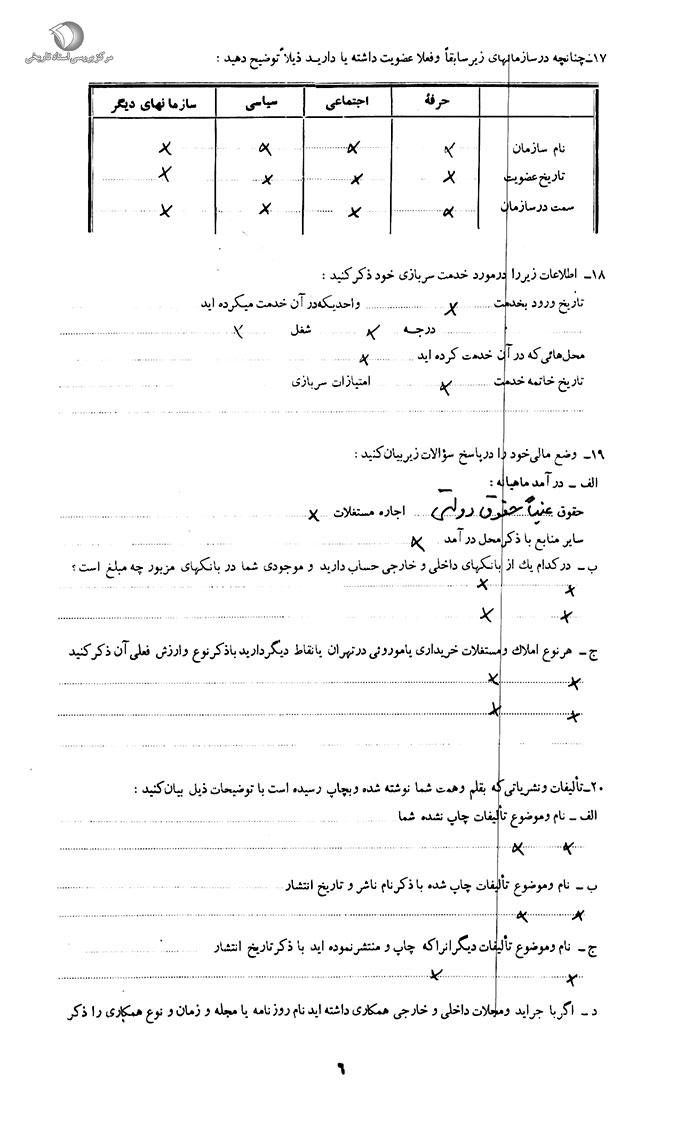 مرکز بررسی اسناد تاریخی
۱۷ـ چنانچه در سازمانهای زیر سابقاً و فعلا عضویت داشته یا دارید ذیلاً توضیح دهید :
حرفهٔ اجتماعی سیاسی سازمانهای دیگر
نام سازمان × × × ×
تاریخ عضویت × × × ×
سمت در سازمان × × × ×
۱۸ـ اطلاعات زیر را در مورد خدمت سربازی خود ذکر کنید :
تاریخ ورود بخدمت × واحدیکه در آن خدمت میکرده اید
درجه × شغل ×
محل‌هائی که در آن خدمت کرده اید ×
تاریخ خاتمه خدمت × امتیازات سربازی
۱۹ـ وضع مالی خود را در پاسخ سؤالات زیر بیان کنید :
الف ـ درآمد ماهیانه :
حقوق عیناً حقوق دولتی اجاره مستغلات ×
سایر منابع با ذکر محل درآمد ×
ب ـ در کدام یک از بانکهای داخلی و خارجی حساب دارید و موجودی شما در بانکهای مزبور چه مبلغ است ؟
× ×
× ×
ج ـ هر نوع املاک و مستغلات خریداری یا موروثی در تهران یا نقاط دیگر دارید با ذکر نوع و ارزش فعلی آن ذکر کنید
× ×
× ×
۲۰ـ تألیفات و نشریاتی که بقلم و همت شما نوشته شده و بچاپ رسیده است با توضیحات ذیل بیان کنید :
الف ـ نام و موضوع تألیفات چاپ نشده شما
× ×
ب ـ نام و موضوع تألیفات چاپ شده با ذکر نام ناشر و تاریخ انتشار
× ×
ج ـ نام و موضوع تألیفات دیگرانرا که چاپ و منتشر نموده اید با ذکر تاریخ انتشار
× ×
د ـ اگر با جراید و مجلات داخلی و خارجی همکاری داشته اید نام روزنامه یا مجله و زمان و نوع همکاری را ذکر
۶